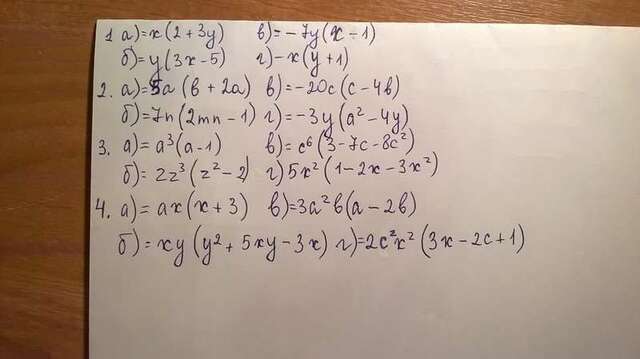 1 а) = x(2+3y) в) = -7y(x-1)
б) = y(3x-5) г) -x(y+1)
2. а) = 5a(b+2a) в) = -20c(c-4b)
б) = 7n(2mn-1) г) = -3y(a²-4y)
3. а) = a³(a-1) в) = c⁶(3-7c-8c²)
б) = 2z³(z²-2) г) 5x²(1-2x-3x²)
4. а) = ax(x+3) в) = 3a²b(a-2b)
б) = xy(y²+5xy-3x) г) = 2c²x²(3x-2c+1)